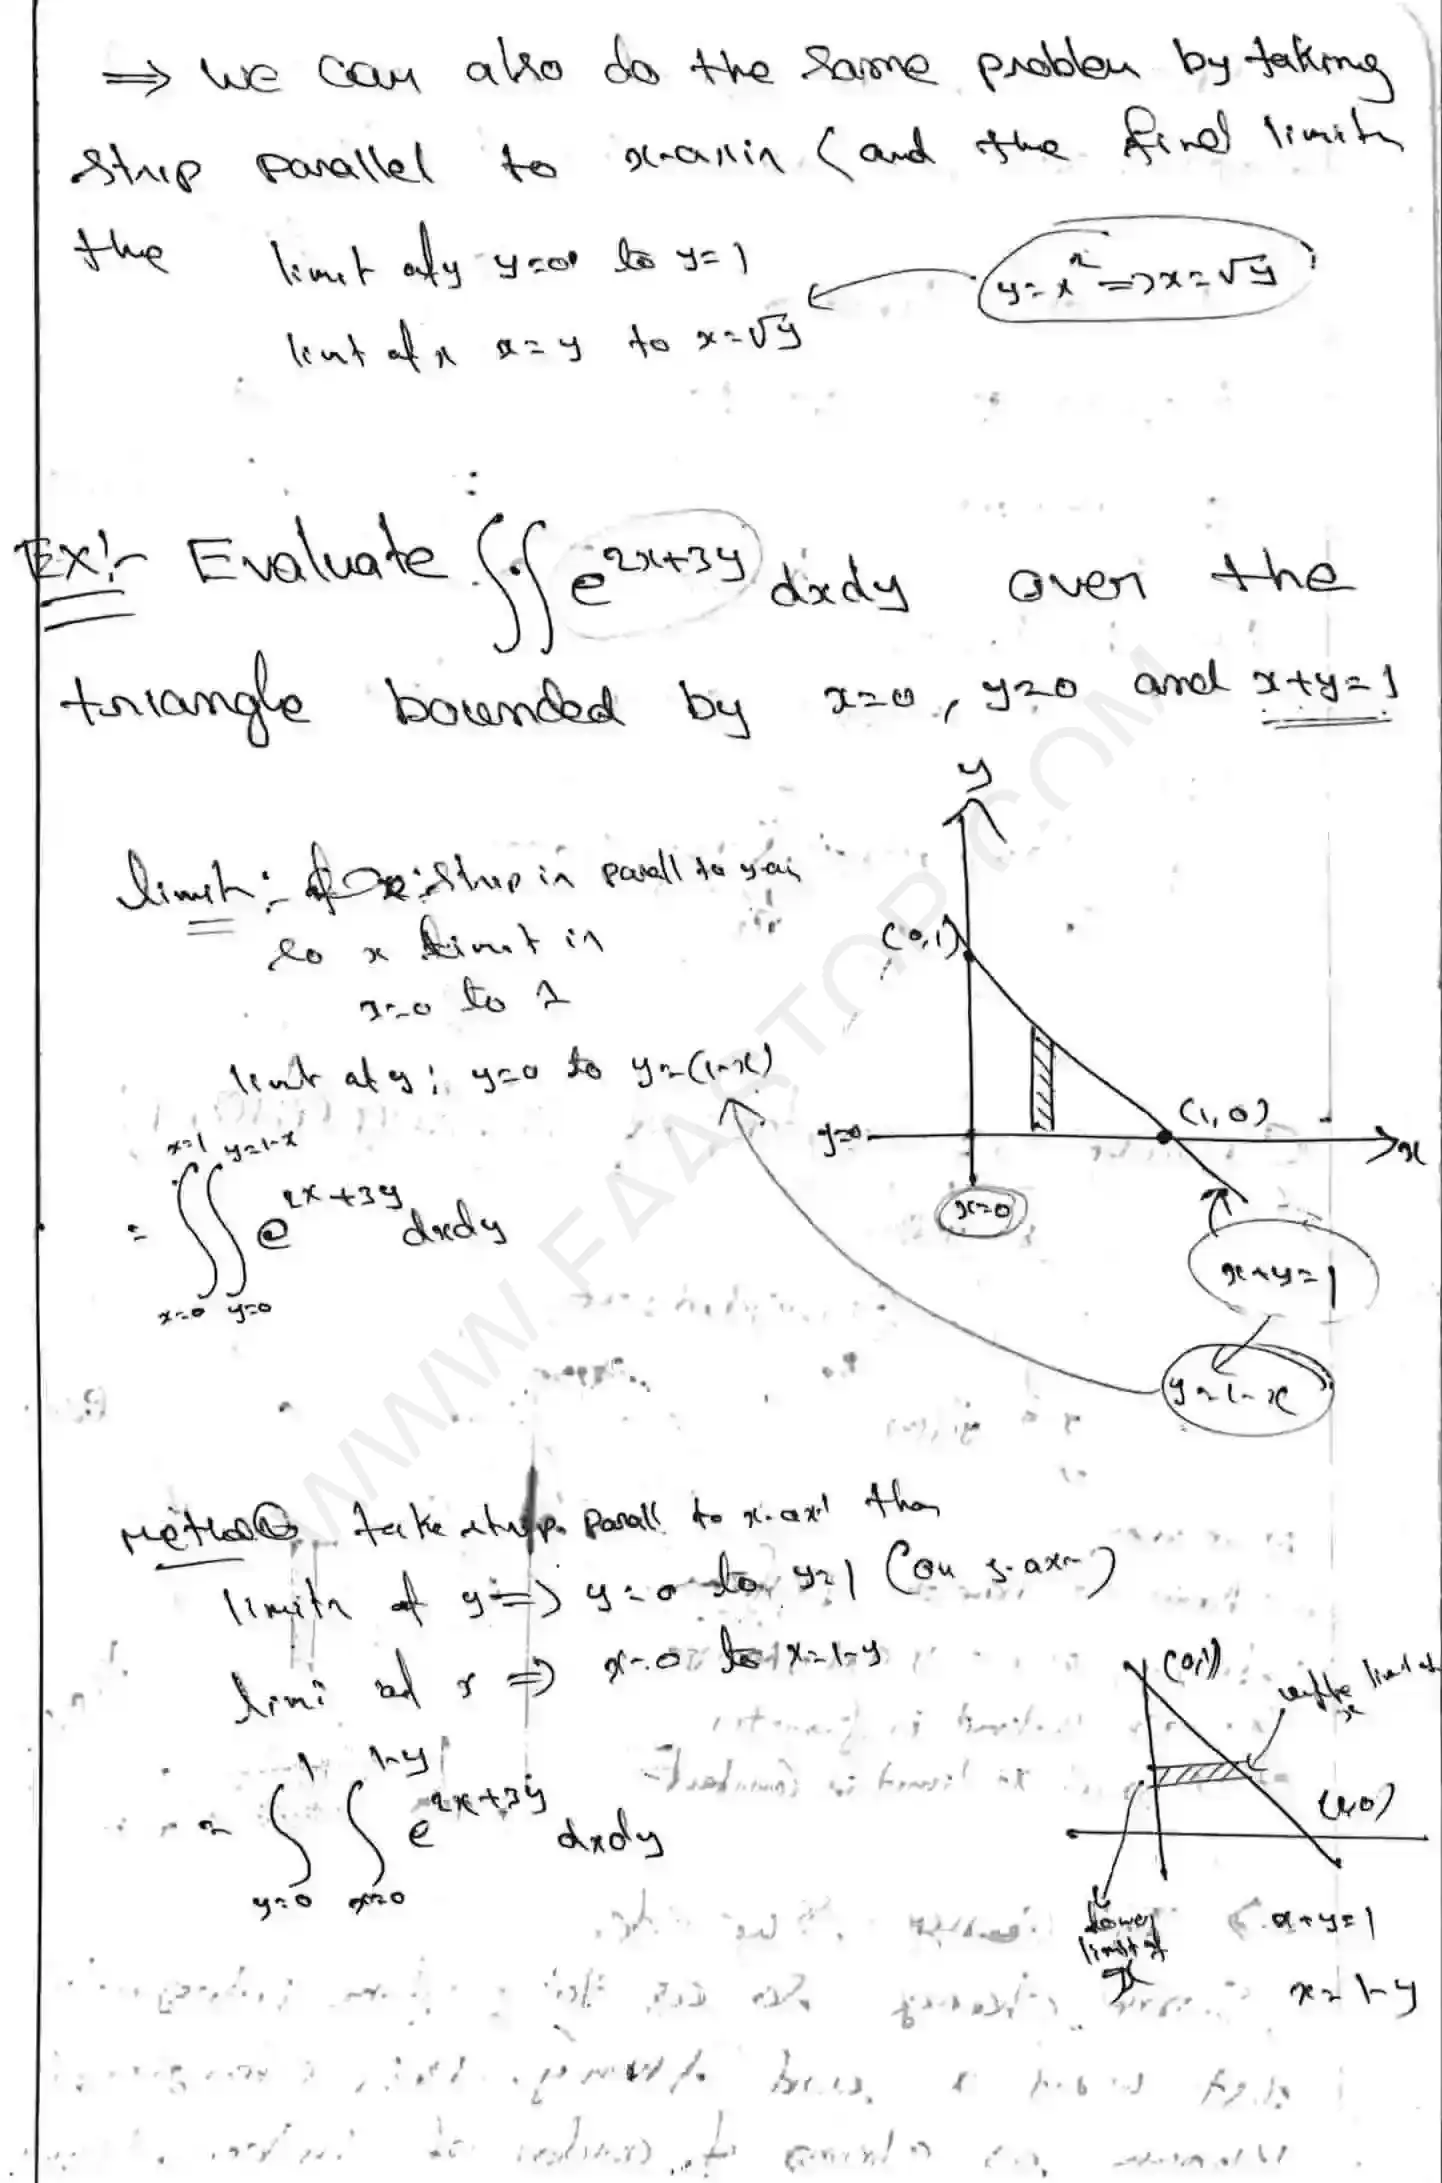 ⇒ we can also do the same problem by taking
strip parallel to x-axis (and the find limits
the limit of y y=0 to y=1
y=x² ⇒ x=√y
limit of x x=y to x=√y
EX:- Evaluate ∬ e^{2x+3y} dxdy over the
triangle bounded by x=0, y=0 and x+y=1
y
limit:- strip is parall to y-axis
(0,1)
so x limit is
x=0 to 1
limit of y: y=0 to y=(1-x)
(1,0)
y=0
x
x=1 y=1-x
= ∬ e^{2x+3y} dxdy
x=0 y=0
x=0
x+y=1
y=1-x
Method② take strip parall to x-axis then
limits of y ⇒ y=0 to y=1 (on y-axis)
limi of x ⇒ x=0 to x=1-y
(0,1)
limit of
x
1 1-y
= ∫ ∫ e^{2x+3y} dxdy
y=0 x=0
(1,0)
lower
limit of
x
x+y=1
x=1-y
WWW.FAASTOP.COM